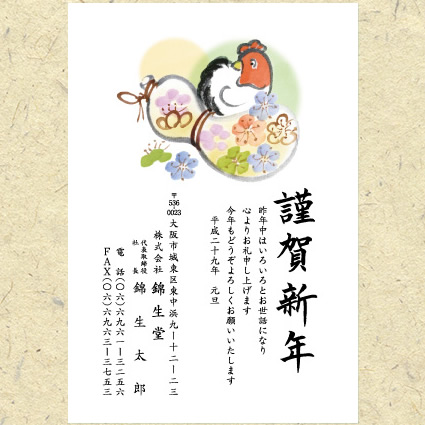 謹賀新年
昨年中はいろいろとお世話になり
心よりお礼申し上げます
今年もどうぞよろしくお願いいたします
平成二十九年　元旦
〒536-0023
大阪市城東区東中浜九ー十二ー二三
株式会社 錦生堂
代表取締役社長 錦生太郎
電話(〇六)六九六一ー三二五六
FAX(〇六)六九六三ー三七五三